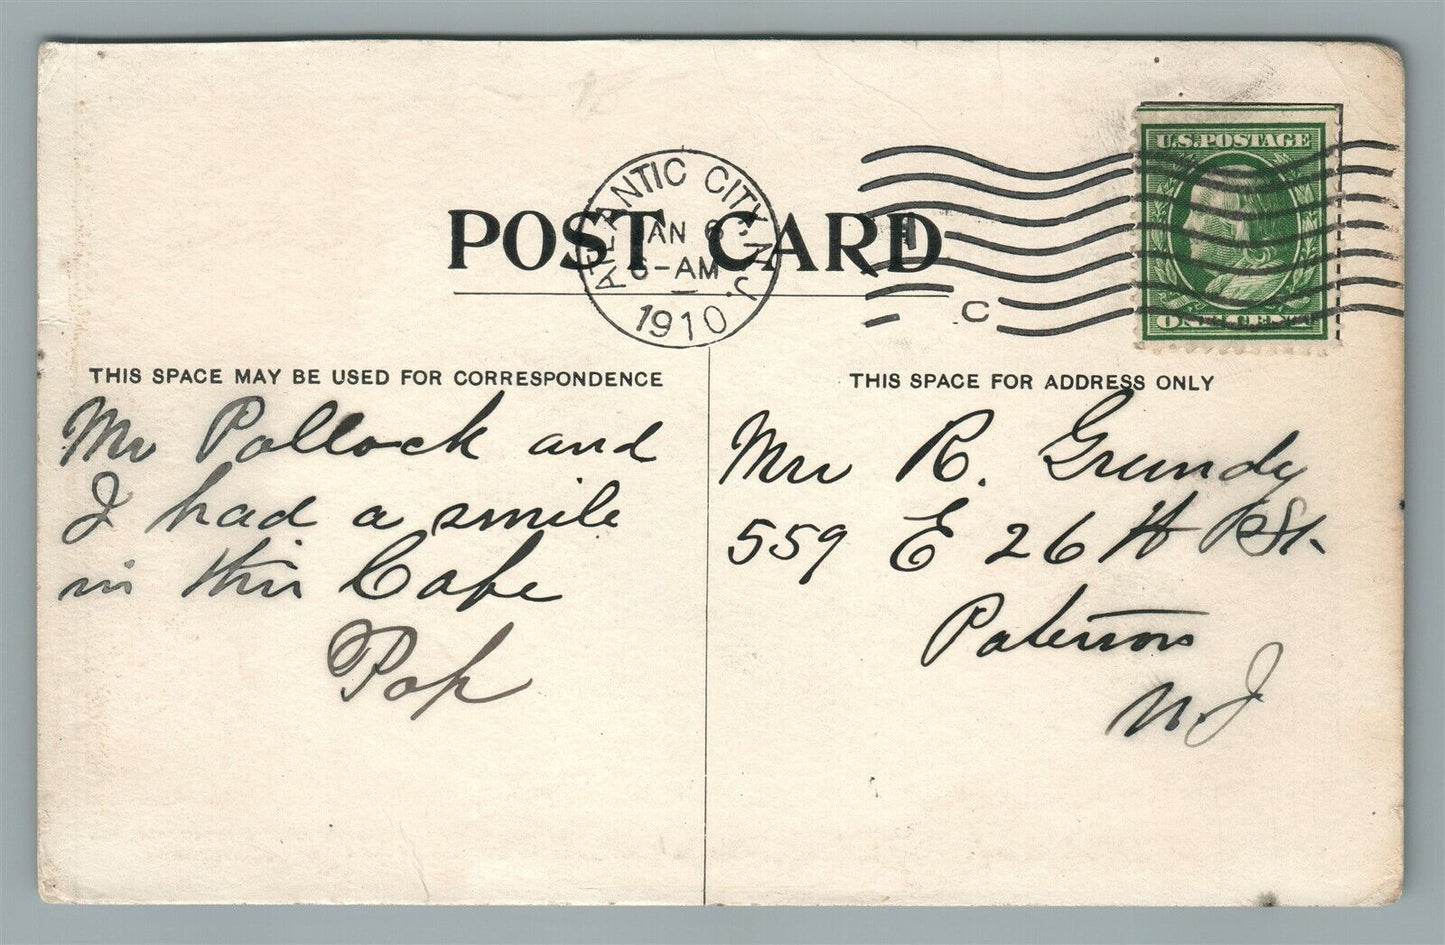 U.S. POSTAGE
ONE CENT
ATLANTIC CITY, N.J.
JAN 6
6-AM
1910
1
C
POST CARD
THIS SPACE MAY BE USED FOR CORRESPONDENCE
Mr Pollock and
I had a smile
in this Cafe
Pop
THIS SPACE FOR ADDRESS ONLY
Mrs R. Grundy
559 E 26th St.
Paterson
N.J